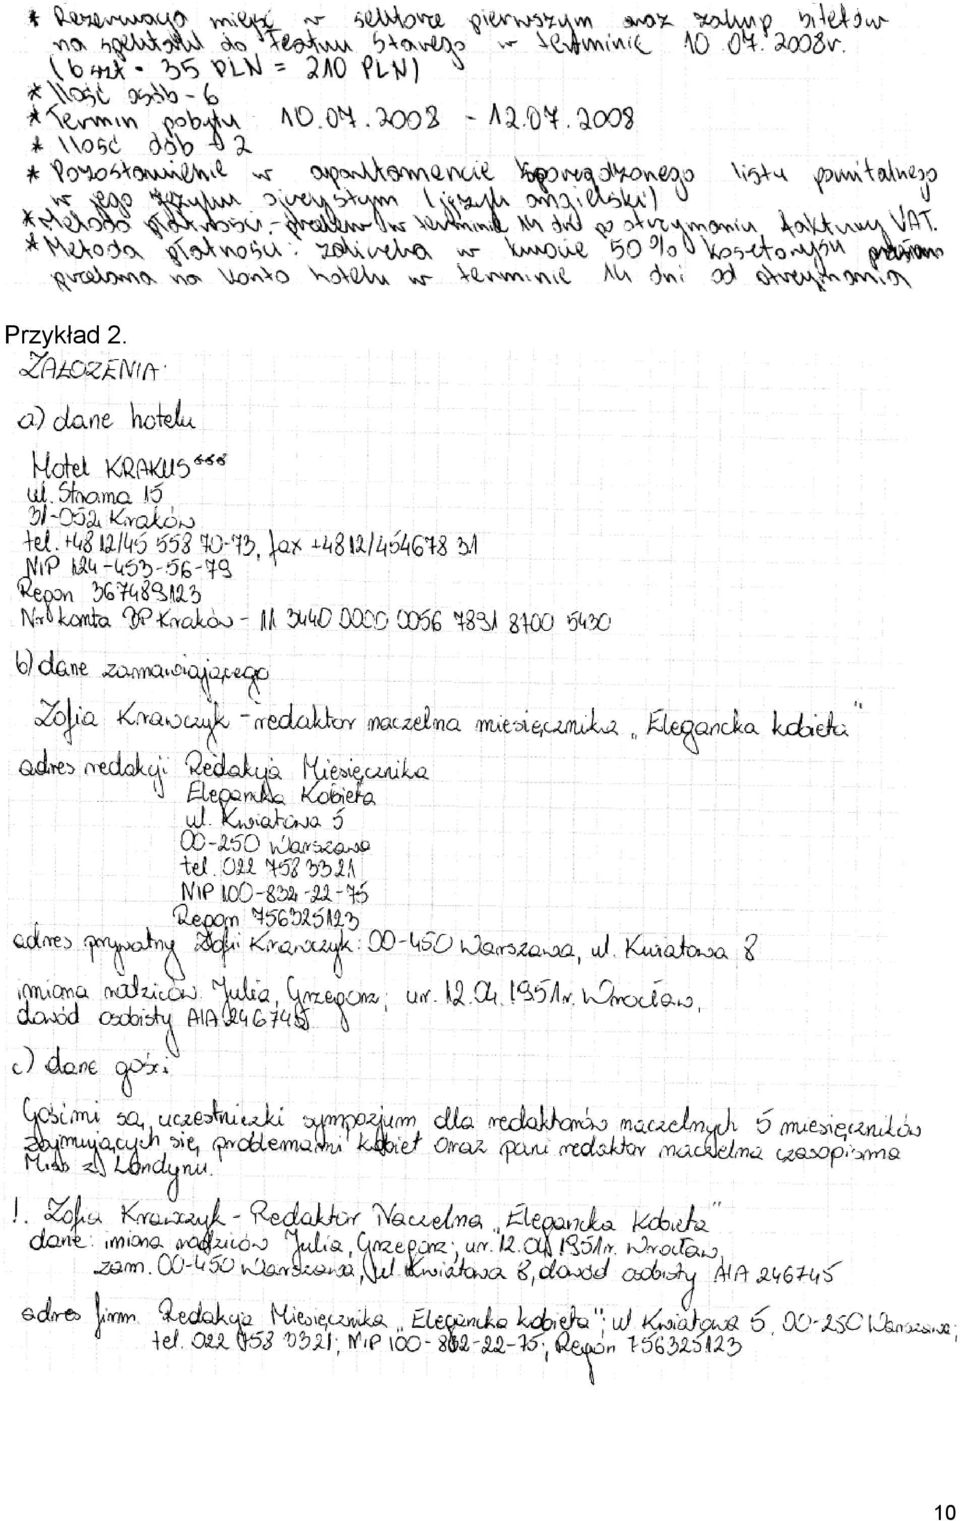 * Rezerwacja miejsc w sektorze pierwszym oraz zakup biletów
na spektakl do Teatru Starego w terminie 10.07.2008r.
(6 szt * 35 PLN = 210 PLN)
* Ilość osób - 6
* Termin pobytu 10.07.2008 - 12.07.2008
* Ilość dób - 2
* Pozostawienie w apartamencie sporządzonego listu powitalnego
w jego języku ojczystym (język angielski)
* Metoda płatności - przelew w terminie 14 dni po otrzymaniu faktury VAT.
* Metoda płatności: zaliczka w kwocie 50% kosztorysu
przelana na konto hotelu w terminie 14 dni od otrzymania
Przykład 2.
ZAŁOŻENIA:
a) dane hotelu
Hotel KRAKUS ***
ul. Stroma 15
31-052 Kraków
tel. +48 12/45 558 70-73, fax +48 12/454678 31
NIP 124-453-56-79
Regon 367489123
Nr konta BP Kraków - 11 3440 0000 0056 7891 8700 5430
b) dane zamawiającego
Zofia Krawczyk - redaktor naczelna miesięcznika „Elegancka kobieta"
adres redakcji Redakcja Miesięcznika
Elegancka Kobieta
ul. Kwiatowa 5
00-250 Warszawa
tel. 022 758 3321
NIP 100-832-22-75
Regon 756325123
adres prywatny Zofii Krawczyk: 00-450 Warszawa, ul. Kwiatowa 8
imiona rodziców Julia, Grzegorz; ur. 12.01.1951r. Wrocław,
dowód osobisty AIA 246745
c) dane gości
Gośćmi są uczestniczki sympozjum dla redaktorów naczelnych 5 miesięczników
zajmujących się problemami kobiet oraz pani redaktor naczelna czasopisma
Miss z Londynu.
1. Zofia Krawczyk - Redaktor Naczelna „Elegancka Kobieta"
dane: imiona rodziców Julia, Grzegorz; ur. 12.01.1951r. Wrocław,
zam. 00-450 Warszawa, ul. Kwiatowa 8, dowód osobisty AIA 246745
adres firm. Redakcja Miesięcznika „Elegancka kobieta"; ul. Kwiatowa 5, 00-250 Warszawa;
tel. 022 758 3321; NIP 100-832-22-75; Regon 756325123
10